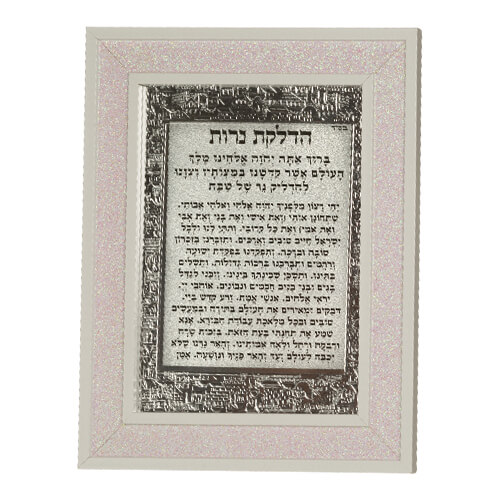 בס״ד
הדלקת נרות
ברוך אתה יהוה אלהינו מלך
העולם אשר קדשנו במצותיו וצונו
להדליק נר של שבת
יהי רצון מלפניך יהוה אלהי ואלהי אבותי,
שתחונן אותי (ואת אישי ואת בני ואת אבי
ואת אמי) ואת כל קרובי, ותתן לנו ולכל
ישראל חיים טובים וארוכים, ותזכרנו בזכרון
טובה וברכה, ותפקדנו בפקודת ישועה
ורחמים ותברכנו ברכות גדולות, ותשלים
בתינו, ותשכן שכינתך בינינו. וזכני לגדל
בנים ובני בנים חכמים ונבונים, אוהבי יי
יראי אלהים, אנשי אמת, זרע קדש ביי
דבקים ומאירים את העולם בתורה ובמעשים
טובים ובכל מלאכת עבודת הבורא. אנא
שמע את תחנתי בעת הזאת, בזכות שרה
ורבקה ורחל ולאה אמותינו, והאר נרנו שלא
יכבה לעולם ועד והאר פניך ונושעה. אמן